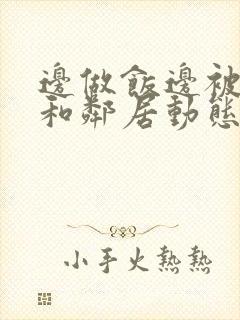 邊做飯邊被
和鄰居動態
小手火熱熱